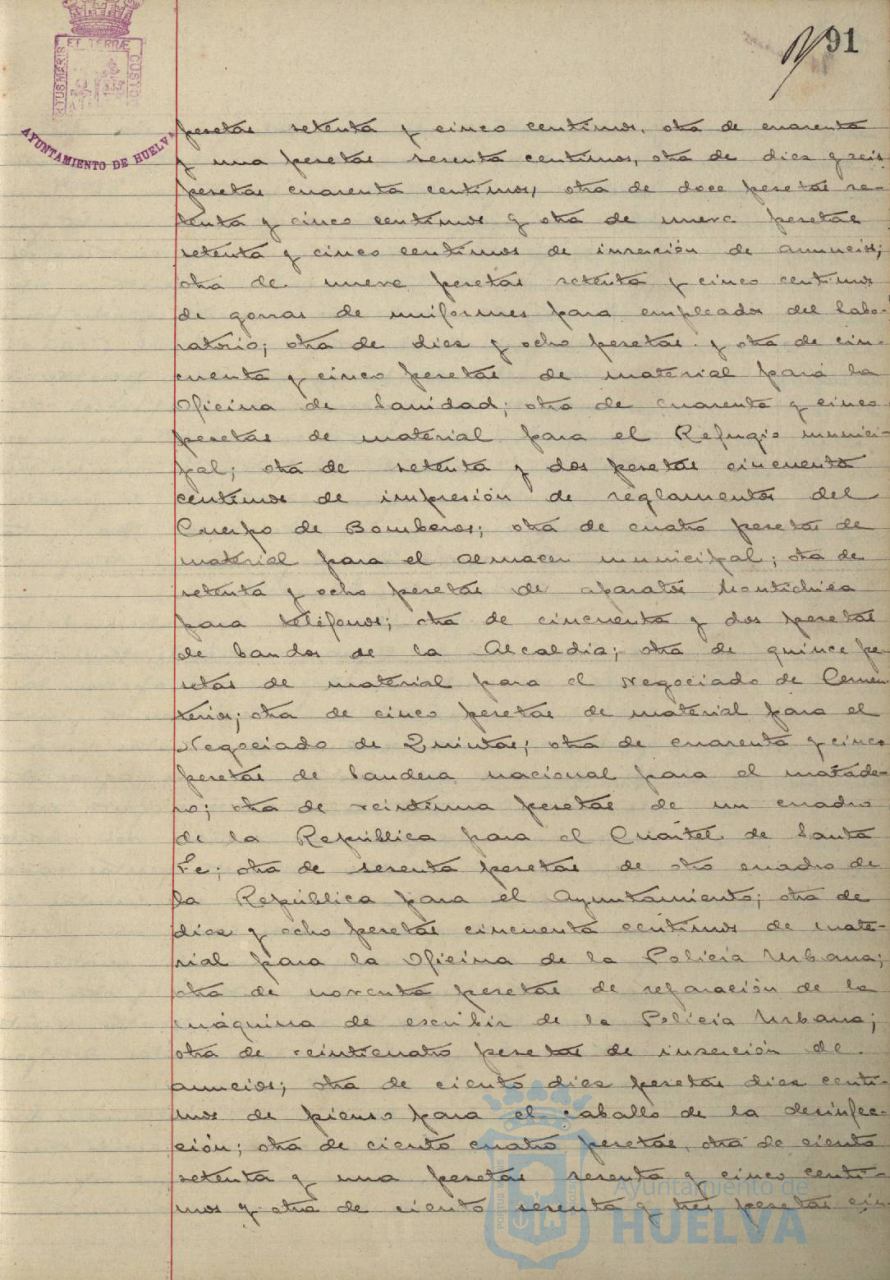 91
ET TERRÆ
CUSTO
AYUNTAMIENTO DE HUELVA
pesetas setenta y cinco centimos, otra de cuarenta
y una pesetas sesenta centimos, otra de diez y seis
pesetas cuarenta centimos, otra de doce pesetas se-
tenta y cinco centimos y otra de nueve pesetas
setenta y cinco centimos de inserción de anuncios;
otra de nueve pesetas setenta y cinco centimos
de gorras de uniformes para empleados del Labo-
ratorio; otra de diez y ocho pesetas y otra de cin-
cuenta y cinco pesetas de material para la
Oficina de Sanidad; otra de cuarenta y cinco
pesetas de material para el Refugio munici-
pal; otra de setenta y dos pesetas cincuenta
centimos de impresión de reglamentos del
Cuerpo de Bomberos; otra de cuatro pesetas de
material para el Almacen municipal; otra de
setenta y ocho pesetas de aparatos
para teléfonos; otra de cincuenta y dos pesetas
de bandos de la Alcaldia; otra de quince pe-
setas de material para el Negociado de Cemen-
terios; otra de cinco pesetas de material para el
Negociado de Quintas; otra de cuarenta y cinco
pesetas de bandera nacional para el matade-
ro; otra de veintiuna pesetas de un cuadro
de la República para el Cuartel de Santa
Fe; otra de sesenta pesetas de otro cuadro de
la República para el Ayuntamiento; otra de
diez y ocho pesetas cincuenta centimos de mate-
rial para la Oficina de la Policía Urbana;
otra de noventa pesetas de reparación de la
máquina de escribir de la Policía Urbana;
otra de veinticuatro pesetas de inserción de
anuncios; otra de ciento diez pesetas diez centi-
mos de pienso para el caballo de la desinfec-
ción; otra de ciento cuatro pesetas, otra de ciento
setenta y una pesetas sesenta y cinco centi-
mos y otra de ciento sesenta y tres pesetas cin-
Ayuntamiento de
HUELVA